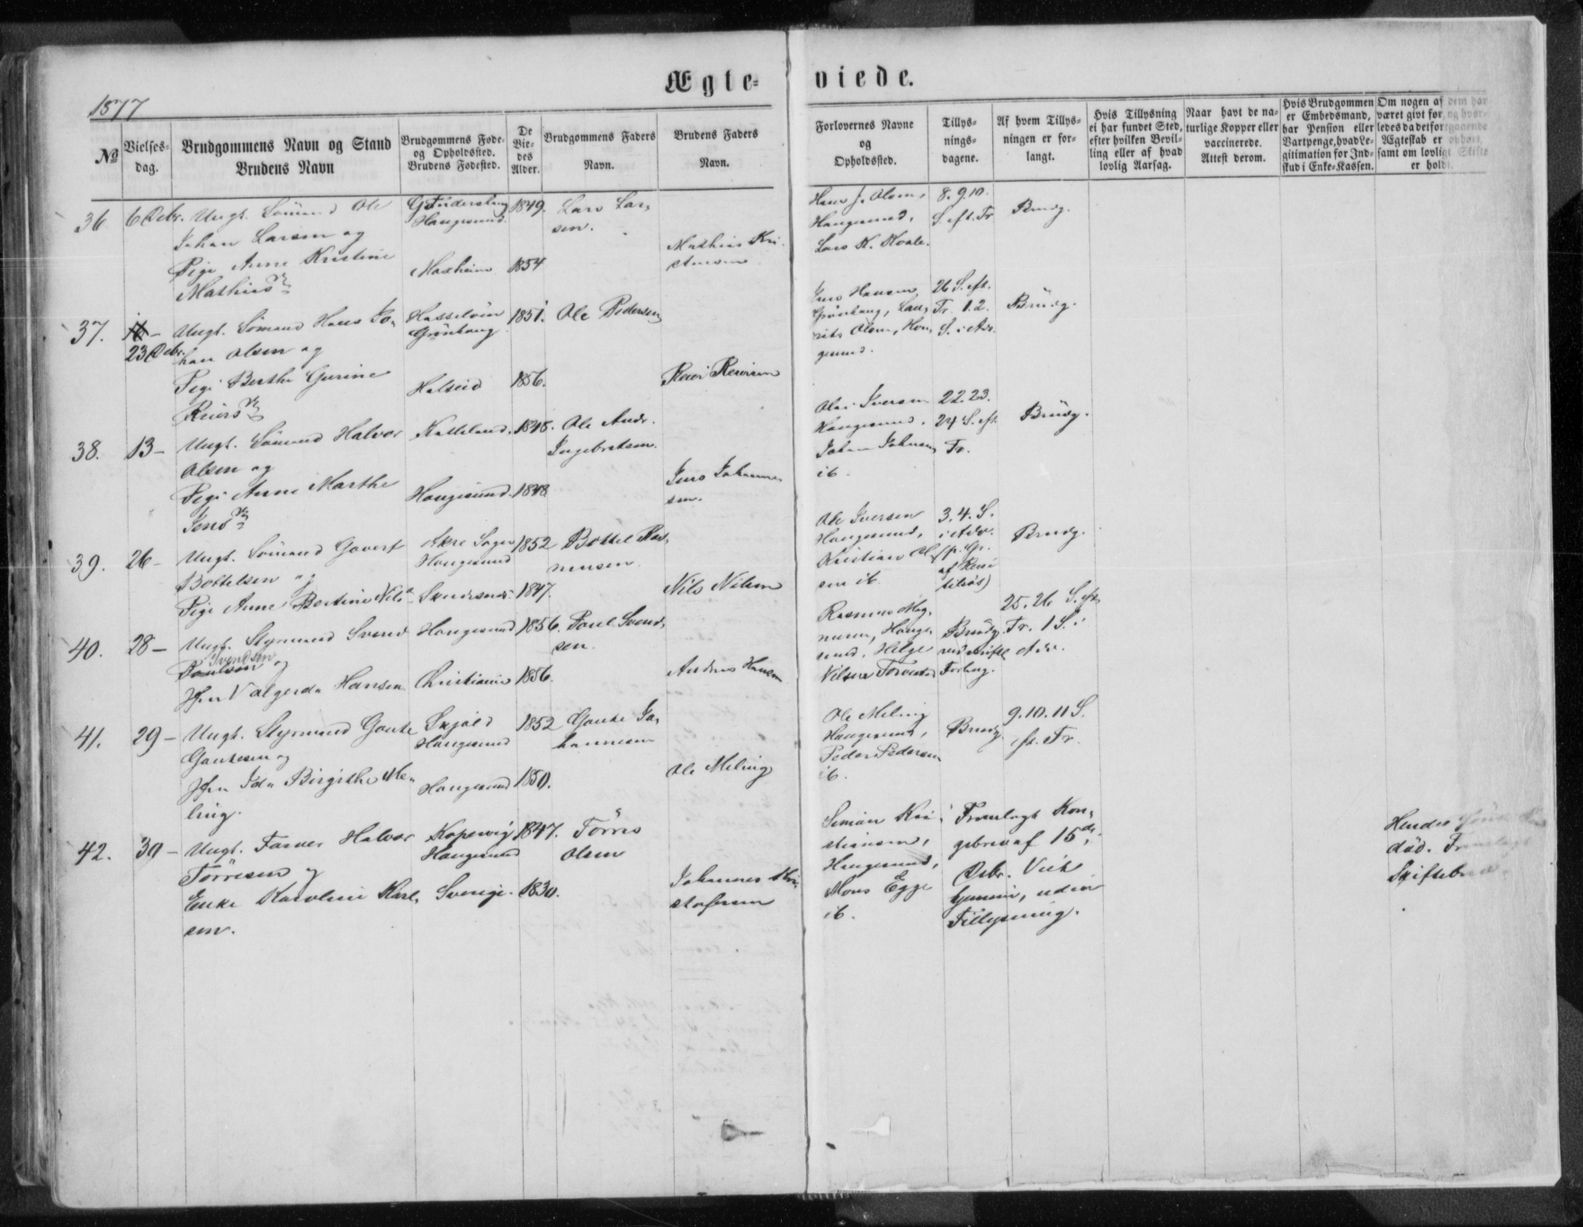 Ægte-
viede.
1877
No
Vielses-
dag.
Brudgommens Navn og Stand
Brudens Navn
Brudgommens Føde-
og Opholdssted.
Brudens Fødested.
De
Vie-
des
Alder.
Brudgommens Faders
Navn.
Brudens Faders
Navn.
Forlovernes Navne
og
Opholdssted.
Tillys-
nings-
dagene.
Af hvem Tillys-
ningen er for-
langt.
Hvis Tillysning
ei har fundet Sted,
efter hvilken Bevil-
ling eller af hvad
lovlig Aarsag.
Naar havt de na-
turlige Kopper eller
vaccinerede.
Attest derom.
Hvis Brudgommen
er Embedsmand,
har Pension eller
Vartpenge, hvad Le-
gitimation for Ind-
skud i Enke-Kassen.
Om nogen af dem har
været givt før, og hvor-
ledes da det foregaaende
Ægteskab er ophørt,
samt om lovligt Skifte
er holdt.
36
6 Decbr.
Ungk. Sømand Ole
Johan Larsen og
Pige Anne Kristine
Mathies
Haugesund
1849.
1854
Lars Lar-
sen.
Mathias Kri-
stensen
Hans J. Olsen,
Haugesund,
Lars K.
8. 9. 10.
S. eft. Tr.
Brudg.
37.
23 Decbr.
Ungk. Sømand Hans Jo-
han Olsen og
Pige Berthe Gurine
Reiers
Grønhaug
1851.
1856.
Ole Pedersen
Reier Reiersen
Jens Hansen,
Grønhaug, Lau-
rits Olsen, Hau-
gesund.
26 S. eft.
Tr. 1. 2.
S. i Adv.
Brudg.
38.
13 -
Ungk. Sømand Halvor
Olsen og
Pige Anne Marthe
Jens
Haugesund.
1848.
1848
Ole Andr.
Ingebretsen.
Jens Johanne-
sen.
Ole Iversen
Haugesund.
ib.
22. 23.
24 S. eft.
Tr.
Brudg.
39.
26 -
Ungk. Sømand Govert
Bottelsen og
Pige Anne Bertine Nils
Akre Sogn
Haugesund
Skudesnæs
1852
1847.
Bottel Ras-
mussen
Nils Nilsen
Ole Iversen
Haugesund,
Kristian Ol-
sen ib.
3. 4. S.
i Adv.
Brudg.
40.
28 -
Ungk. Styrmand Svend
Svendsen
Paulsen og
Jfr. Valgerda Hansen
Haugesund
Christiania
1856.
1856.
Poul Svend-
sen.
Andreas Hansen
Rasmus Mag-
nusen, Hauge-
sund. Helge
Nilsen
25. 26. S. eft.
Tr. 1 S. i
Adv.
Brudg.
41.
29 -
Ungk. Styrmand Gaute
Gautesen og
Jfr. Ida Birgithe Me-
ling.
Skjold
Haugesund
Haugesund
1852
1850.
Gaute Jo-
hannesen
Ole Meling
Ole Meling
Haugesund,
Peder Pedersen
ib.
9. 10. 11 S.
eft. Tr.
Brudg.
42.
30 -
Ungk. Farver Halvor
Tørresen og
Enke Karoline Karl-
sen.
Kopervig
Haugesund
Sverige.
1847.
1830.
Tørres
Olsen
Johannes Kri-
stofersen
Simon Kri-
stiansen,
Haugesund,
Mons Egge
ib.
Fremlagt Kon-
gebrev af 15de
Decbr. Viet
hjemme, uden
Tillysning.
Hendes
død.
Skiftebrev.